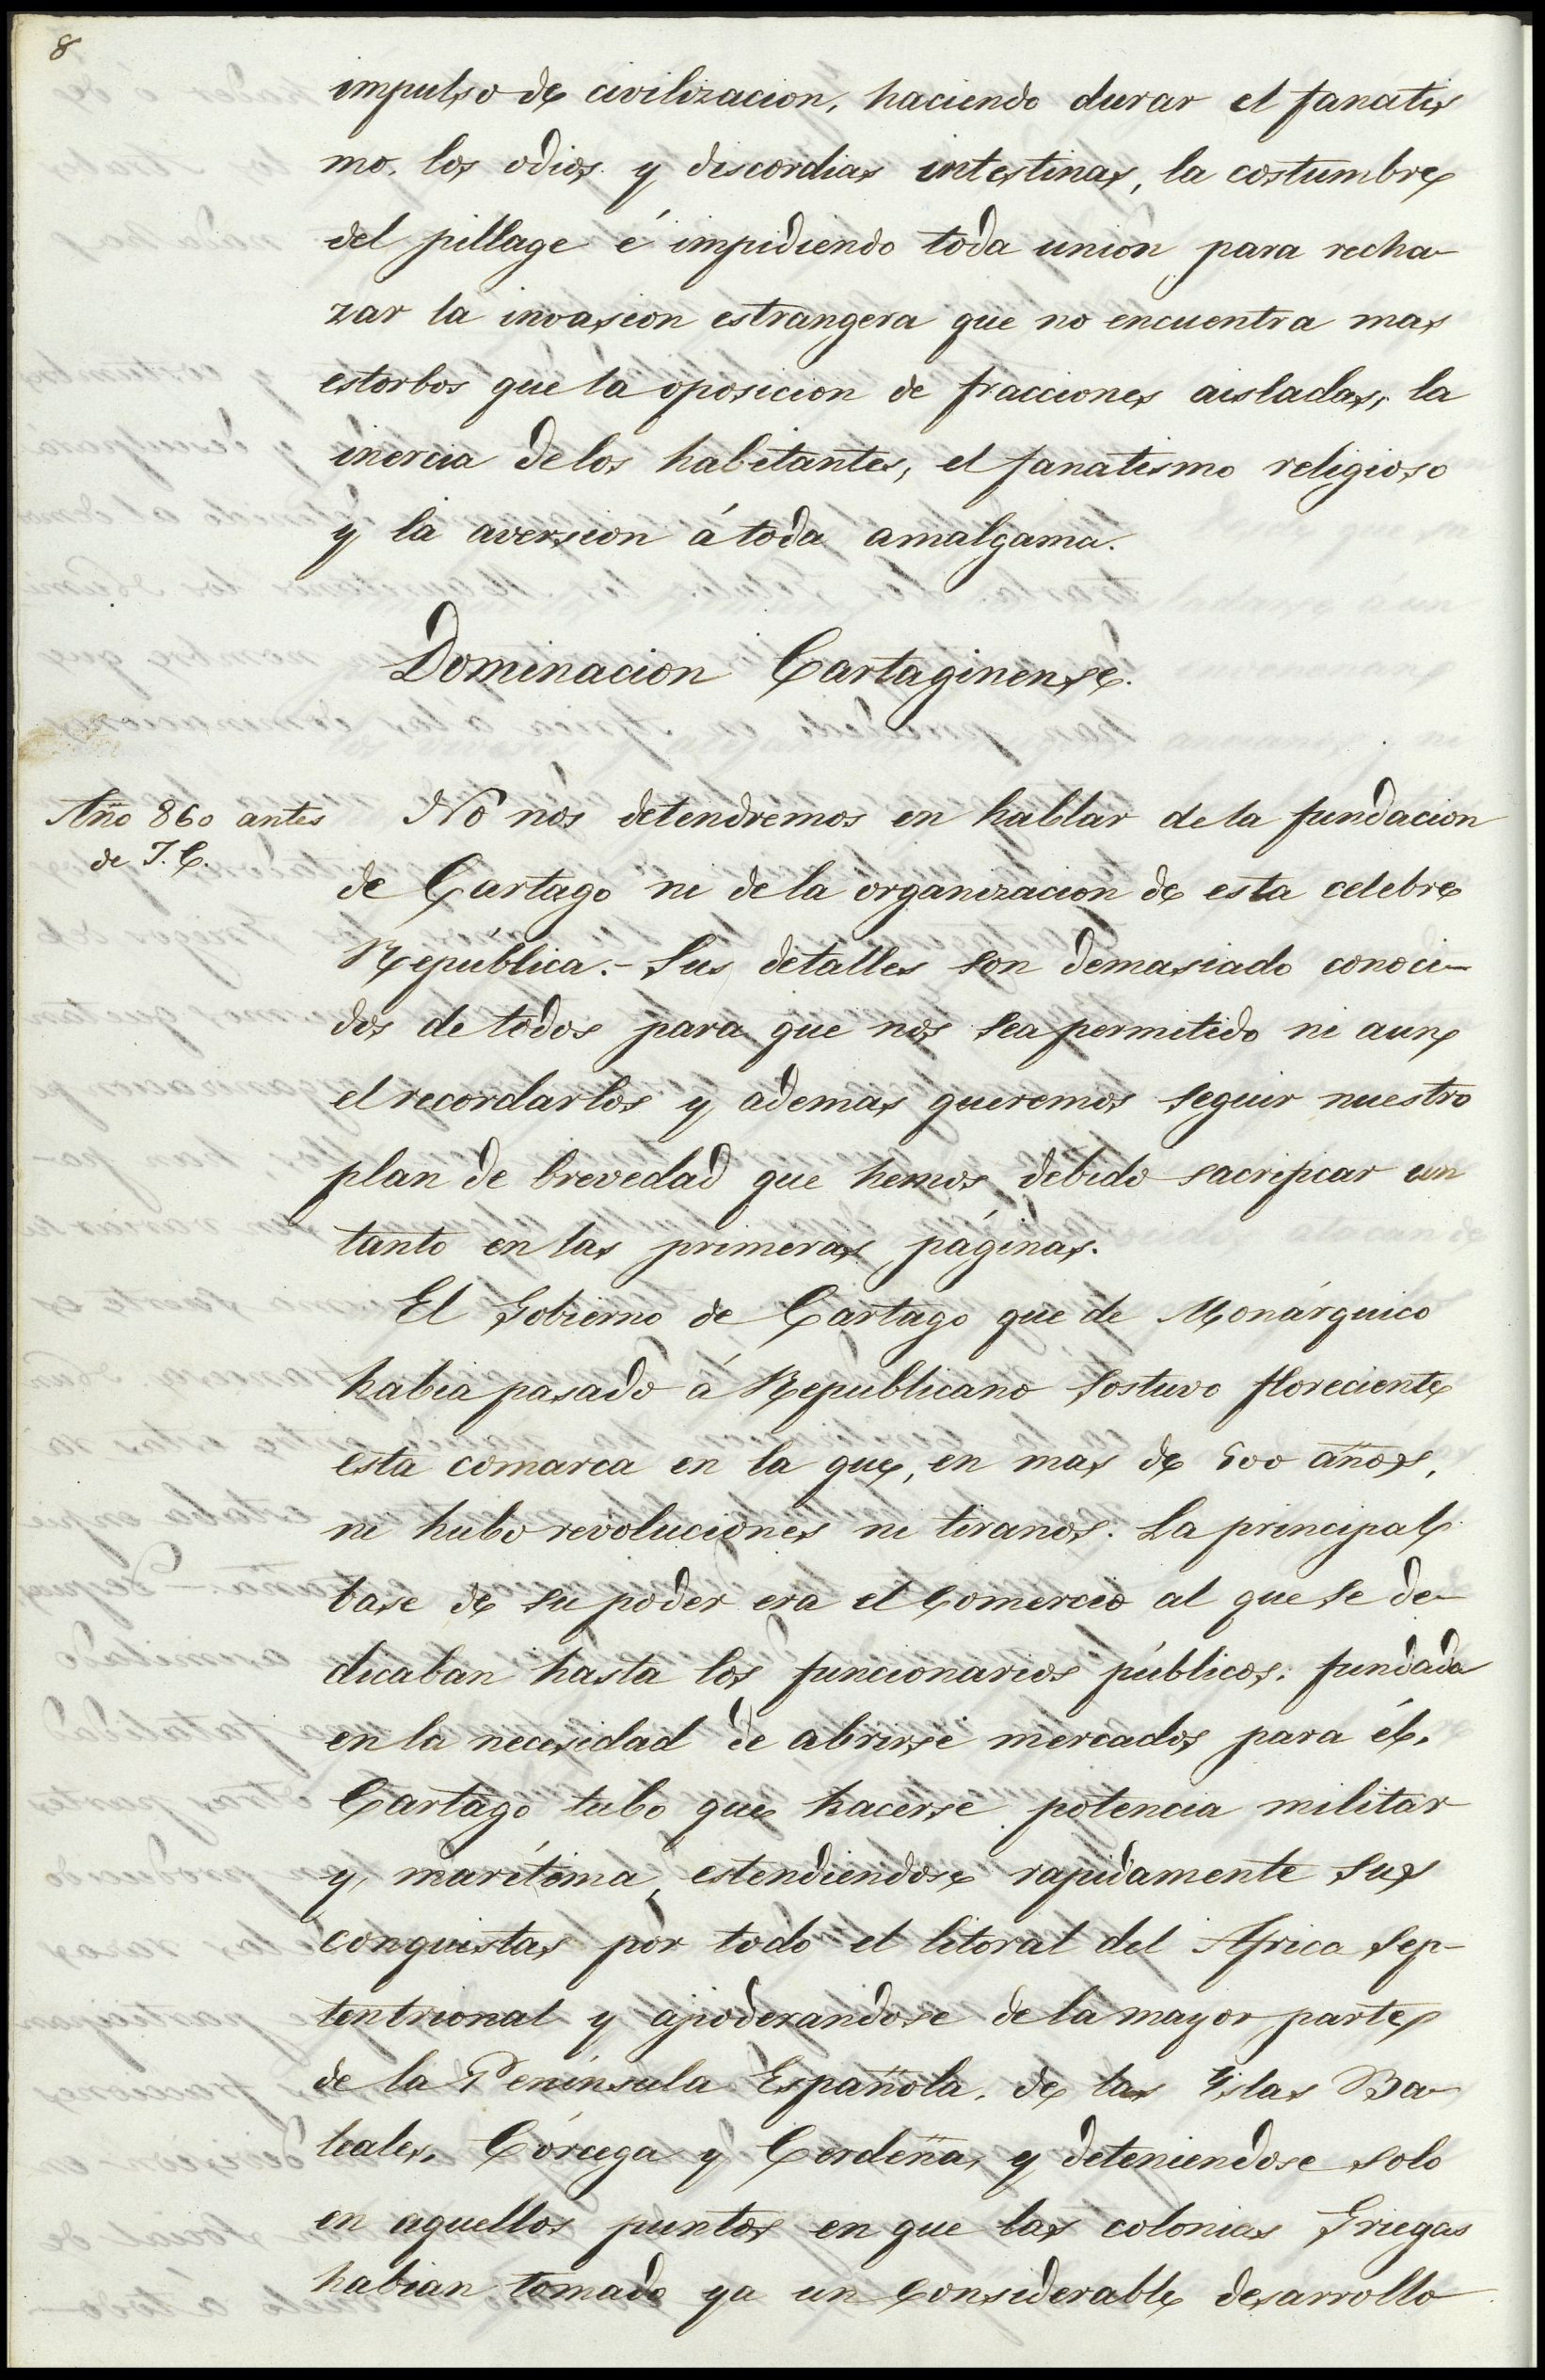 8
impulso de civilizacion, haciendo durar el fanatis
mo, los odios y discordias intestinas, la costumbre
del pillage é impidiendo toda union para recha-
zar la invasion estrangera que no encuentra mas
estorbos que la oposicion de fracciones aisladas, la
inercia de los habitantes, el fanatismo religioso
y la aversion á toda amalgama.
Dominacion Cartaginense.
Año 860 antes
de J. C.
No nos detendremos en hablar de la fundacion
de Cartago ni de la organizacion de esta celebre
República.- Sus detalles son demasiado conoci-
dos de todos para que nos sea permitido ni aun
el recordarlos y ademas queremos seguir nuestro
plan de brevedad que hemos debido sacrificar un
tanto en las primeras páginas.
El Gobierno de Cartago que de Monárquico
habia pasado á Republicano sostuvo floreciente
esta comarca en la que, en mas de 500 años,
ni hubo revoluciones ni tiranos. La principal
base de su poder era el Comercio al que se de-
dicaban hasta los funcionarios públicos; fundada
en la necesidad de abrirse mercados para él,
Cartago tubo que hacerse potencia militar
y marítima, estendiendose rapidamente sus
conquistas por todo el litoral del Africa sep-
tentrional y apoderandose de la mayor parte
de la Península Española, de las Yslas Ba-
leales, Córcega y Cerdeña, y deteniendose solo
en aquellos puntos en que las colonias Griegas
habian tomado ya un considerable desarrollo